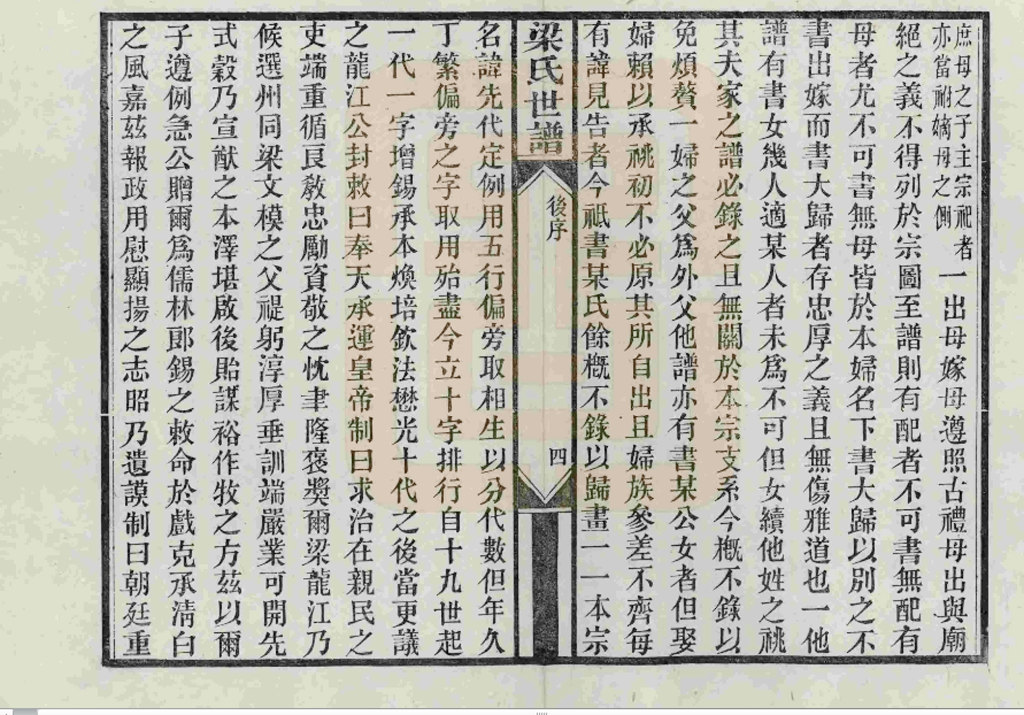 庶母之子主宗祀者
亦當祔嫡母之側
一出母嫁母遵照古禮母出與廟
絕之義不得列於宗圖至譜則有配者不可書無配有
母者尤不可書無母皆於本婦名下書大歸以別之不
書出嫁而書大歸者存忠厚之義且無傷雅道也一他
譜有書女幾人適某人者未為不可但女續他姓之祧
其夫家之譜必錄之且無關於本宗支系今概不錄以
免煩贅一婦之父為外父他譜亦有書某公女者但娶
婦賴以承祧初不必原其所自出且婦族參差不齊每
有諱見告者今祗書某氏餘概不錄以歸畫一一本宗
梁氏世譜
後序
四
名諱先代定例用五行偏旁取相生以分代數但年久
丁繁偏旁之字取用殆盡今立十字排行自十九世起
一代一字增錫承本煥培欽法懋光十代之後當更議
之龍江公封敕曰奉天承運皇帝制曰求治在親民之
吏端重循良敎忠勵資敬之忱聿隆褒奬爾梁龍江乃
候選州同梁文模之父禔躬淳厚垂訓端嚴業可開先
式穀乃宣猷之本澤堪啟後貽謀裕作牧之方茲以爾
子遵例急公贈爾爲儒林郎錫之敕命於戲克承淸白
之風嘉茲報政用慰顯揚之志昭乃遺謨制曰朝廷重